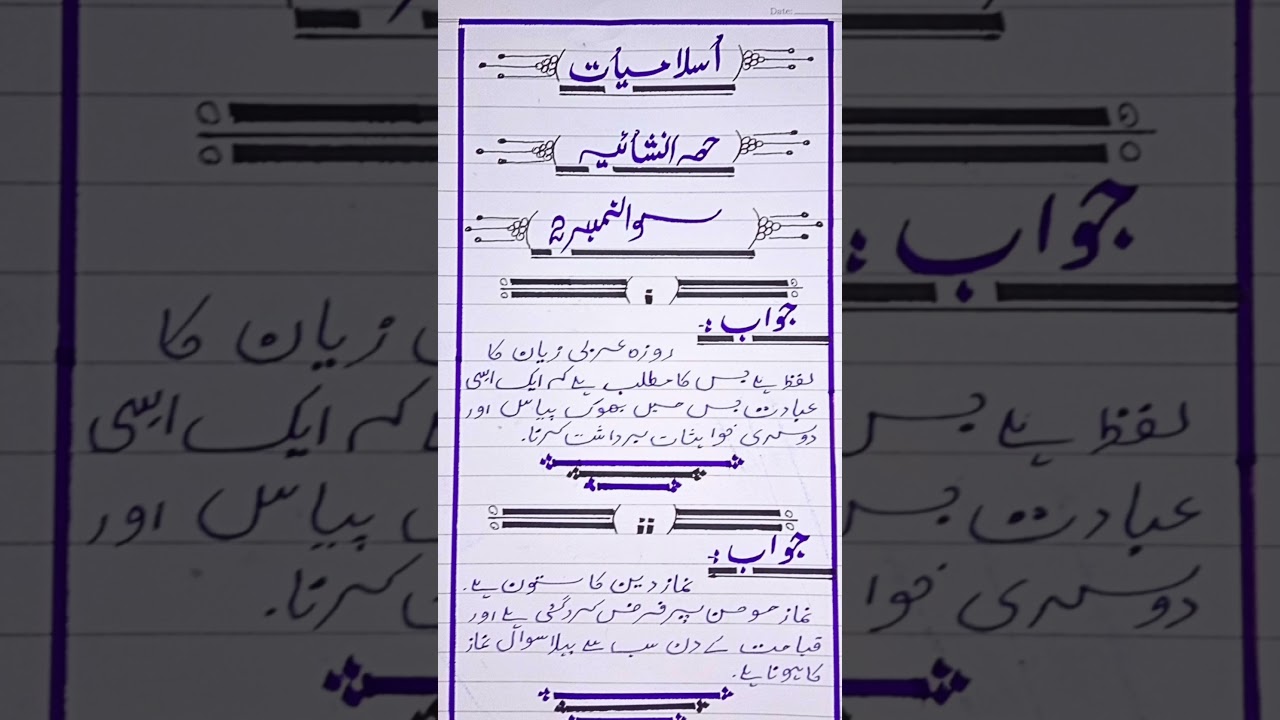 Date:
اسلامیات
حصہ انشائیہ
سوالنمبر 2
i
جواب :-
روزہ عربی زبان کا
لفظ ہے جس کا مطلب ہے کہ ایک ایسی
عبادت جس میں بھوک پیاس اور
دوسری خواہشات برداشت کرنا۔
ii
جواب :-
نماز دین کا ستون ہے۔
نماز مومن پر فرض کردگئی ہے اور
قیامت کے دن سب سے پہلا سوال نماز
کا ہونا ہے۔